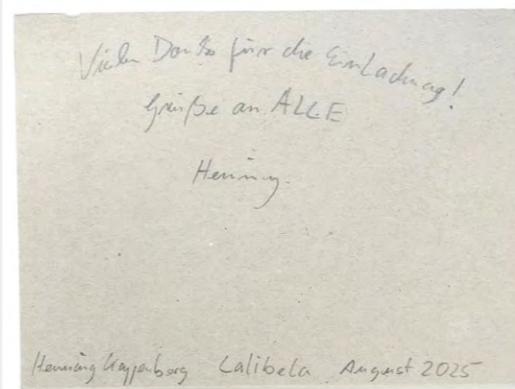 Vielen Dank für die Einladung!
Grüße an ALLE
Henning.
Henning Calibela August 2025